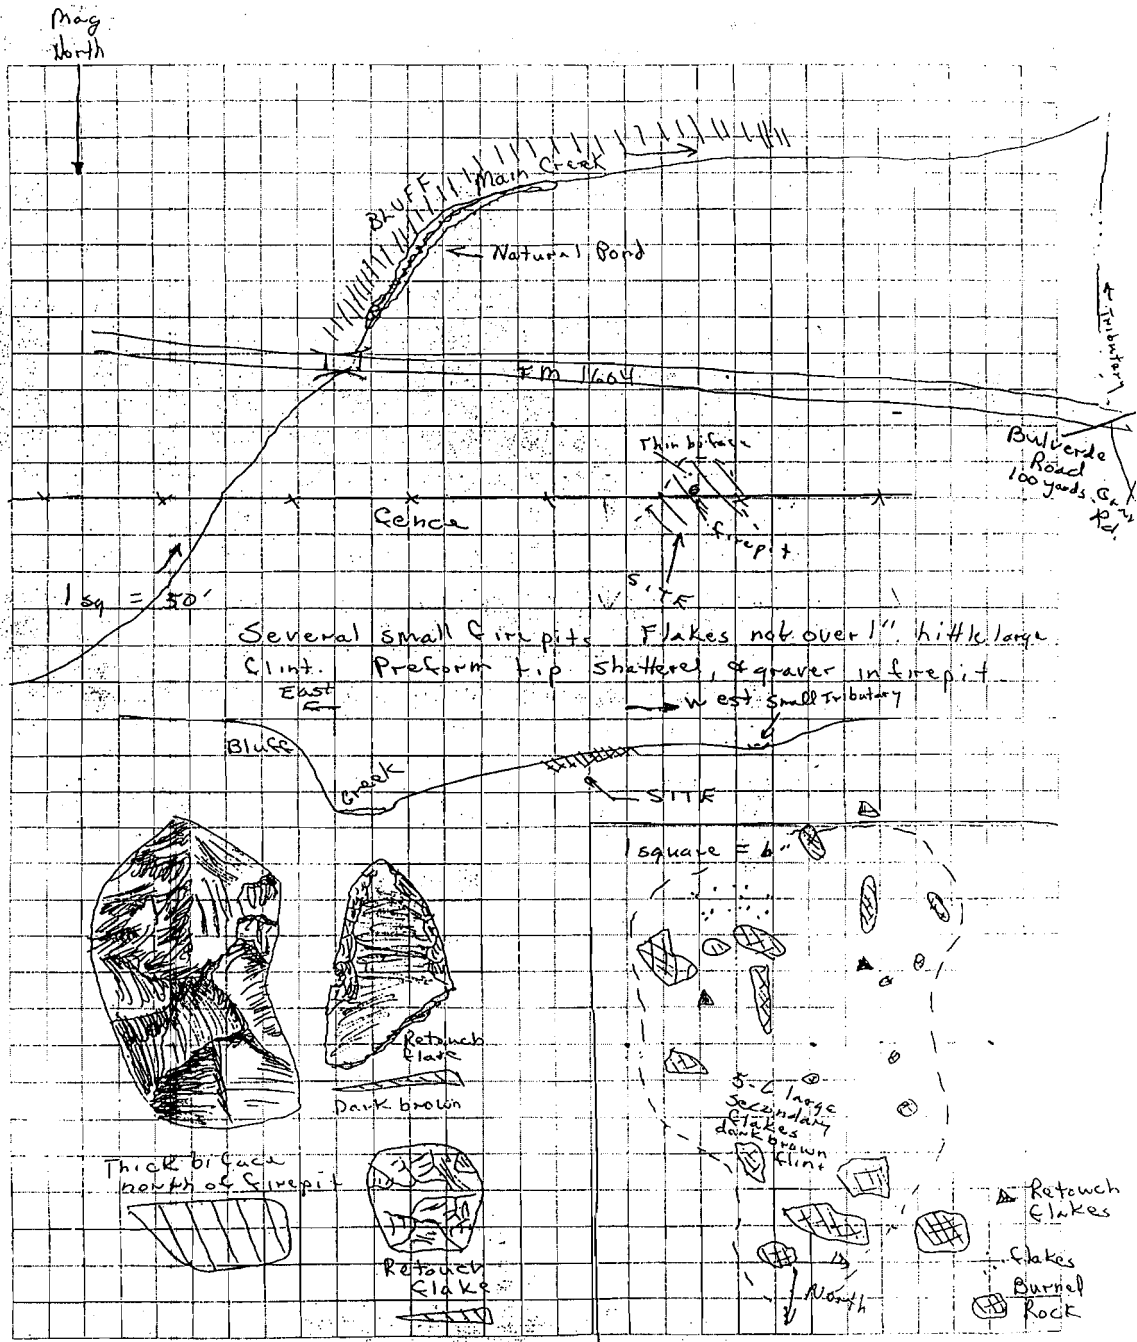 Mag
North
BLUFF
Main Creek
Natural Pond
Tributary
FM 1604
Bulverde
Road
100 yards
Thin biface
fence
firepit
SITE
1 sq = 50'
Several small firepits Flakes not over 1" little large
flint. Preform tip shattered, & graver in firepit
East
West
Small Tributary
Bluff
Creek
SITE
1 square = 6"
Retouch
flake
Dark brown
5-6 large
secondary
flakes
dark brown
flint
Thick biface
north of firepit
Retouch
flake
North
Retouch
flakes
flakes
Burned
Rock